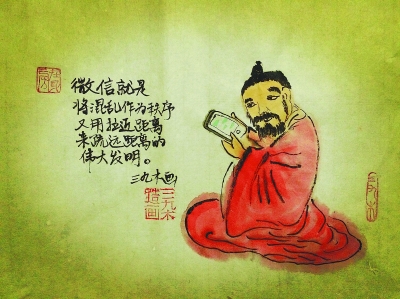 微信就是
将混乱作为秩序
又用拉近距离
来疏远距离的
伟大发明。
三九木画